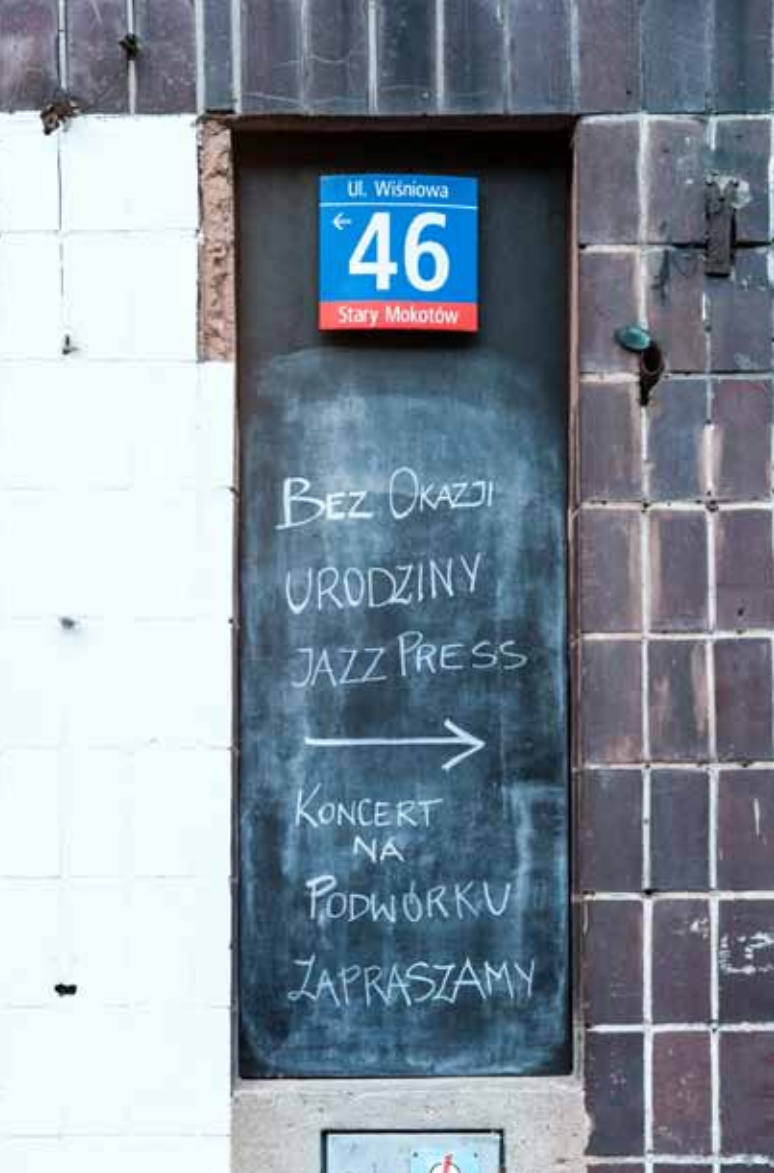 Ul. Wiśniowa
← 46
Stary Mokotów
BEZ OKAZJI
URODZINY
JAZZ PRESS
→
KONCERT
NA
PODWÓRKU
ZAPRASZAMY